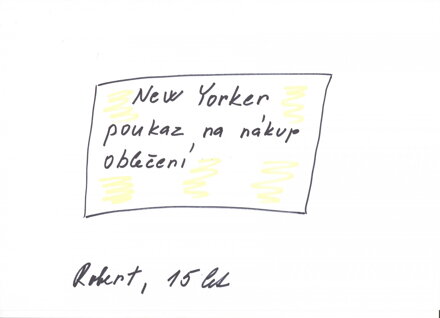 New Yorker
poukaz na nákup
oblečení
Robert, 15 let